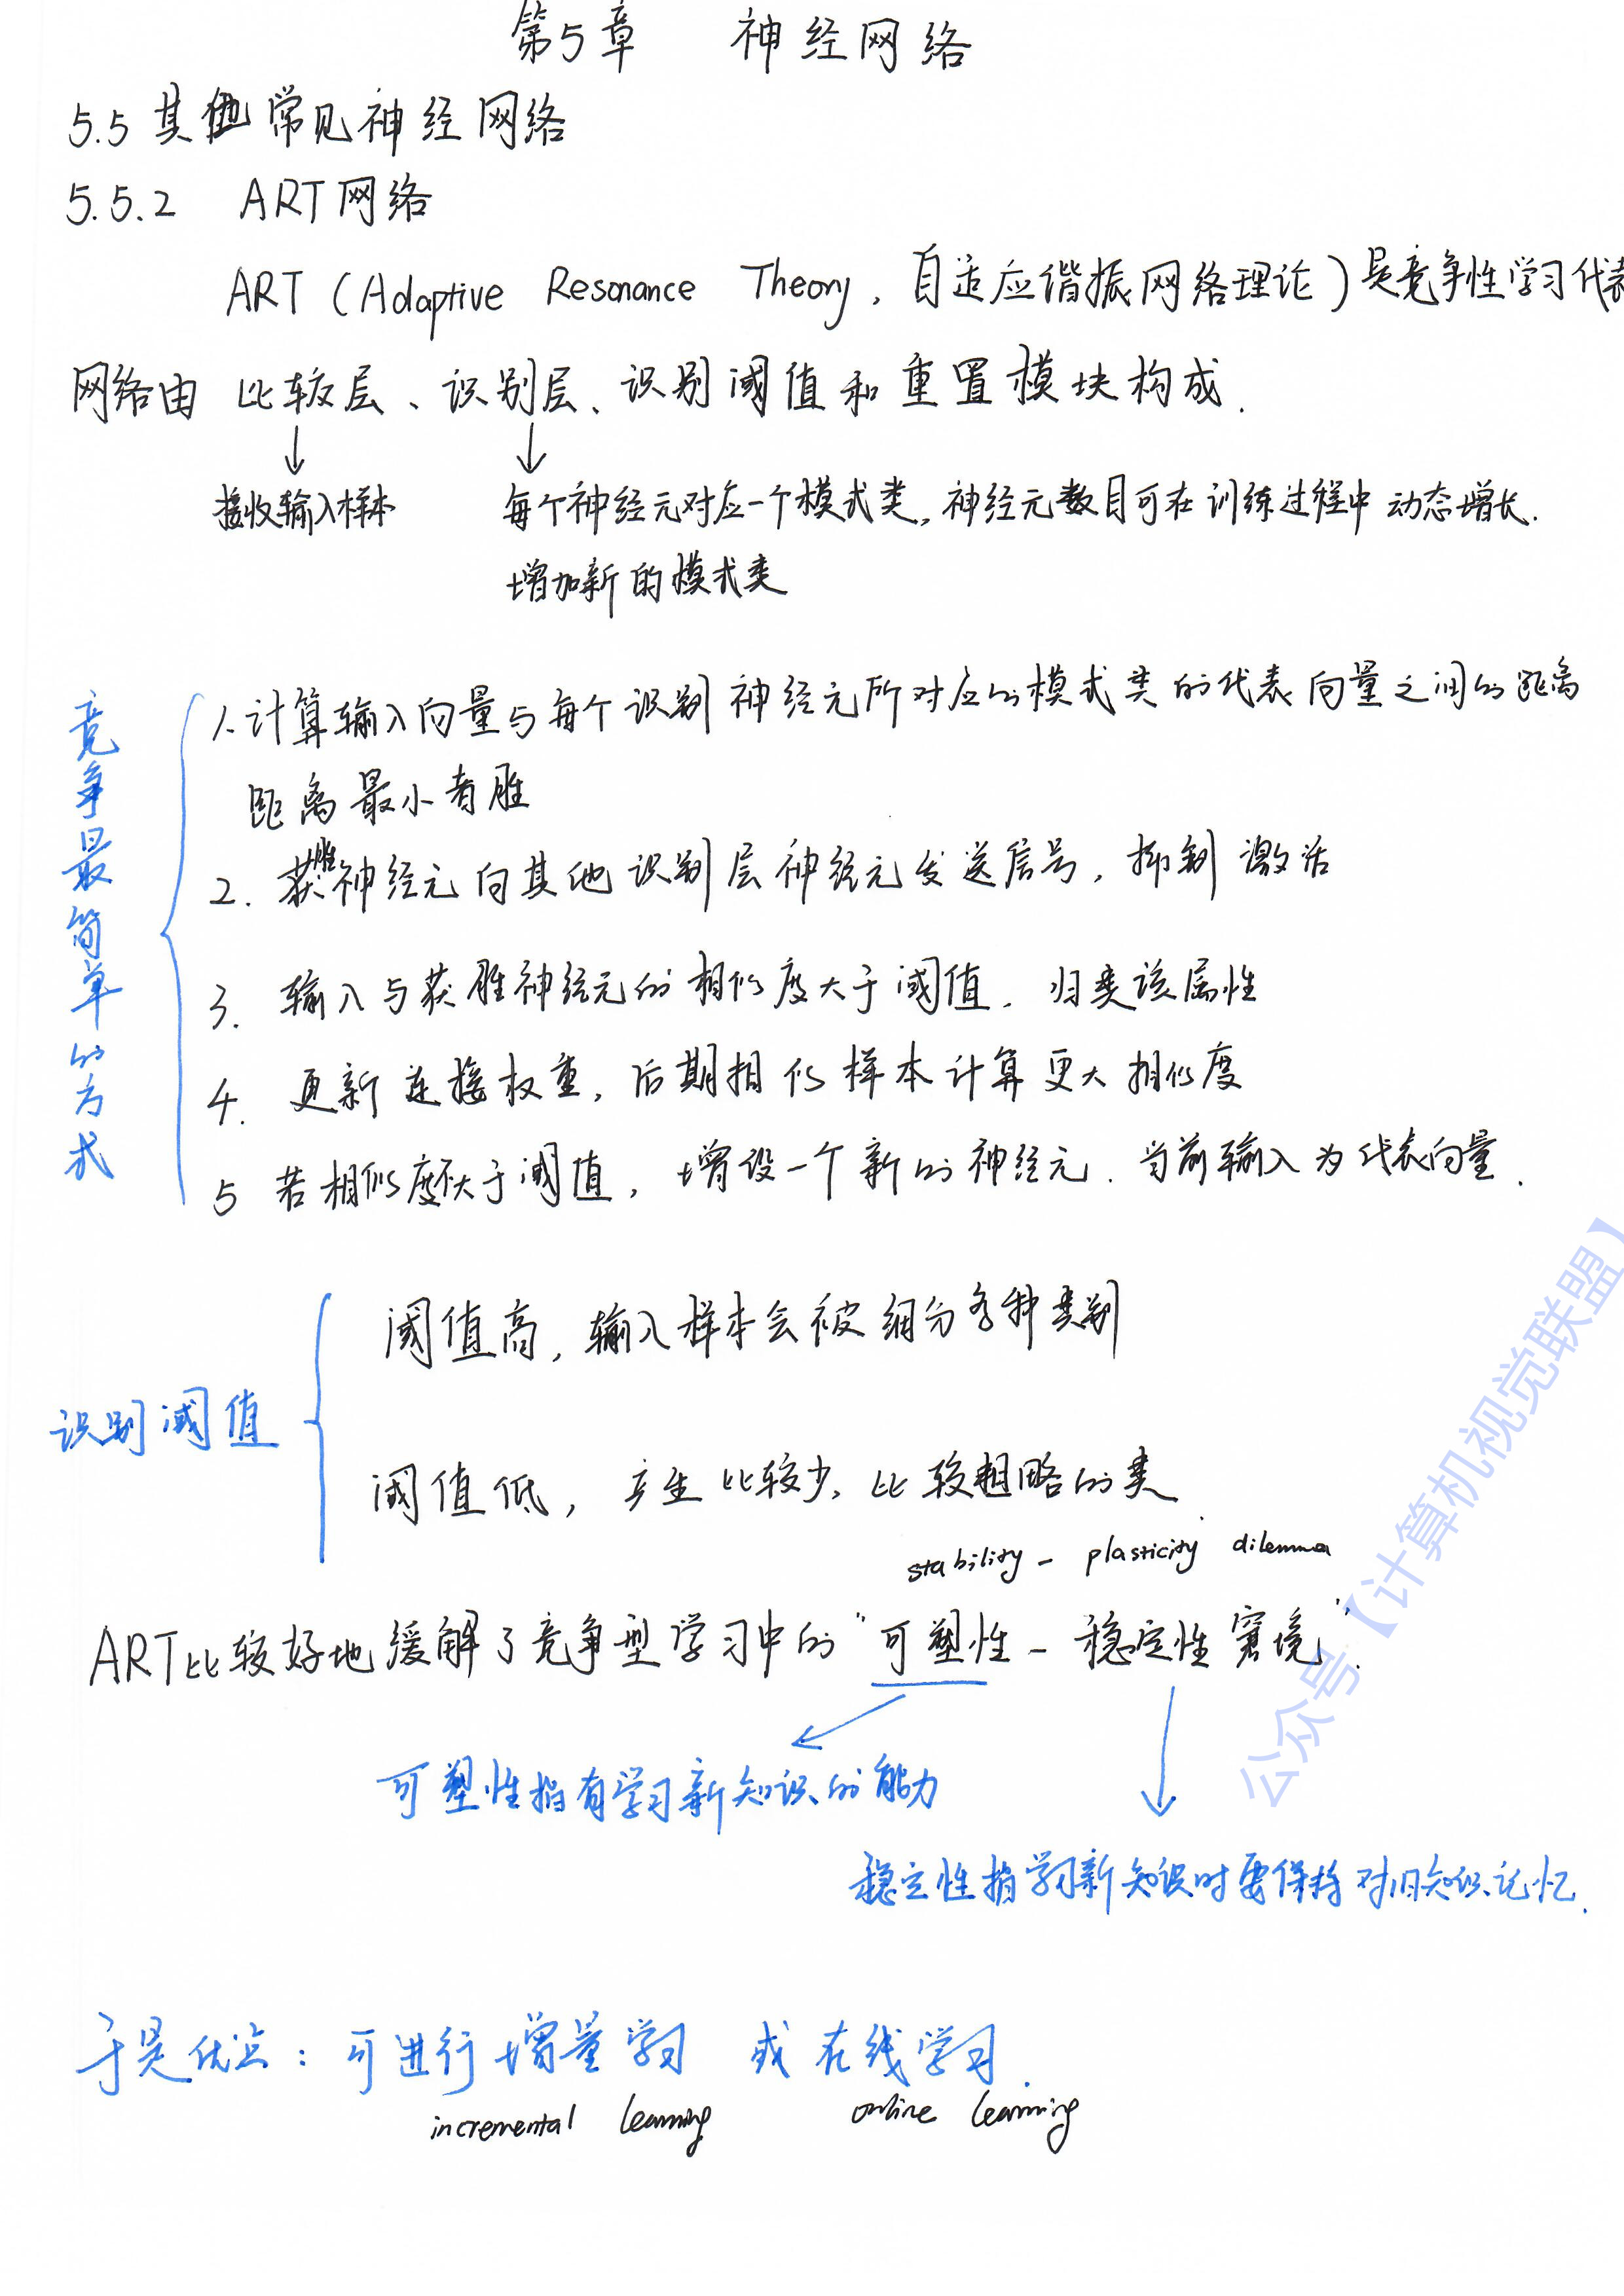 第5章 神经网络
5.5 其他常见神经网络
5.5.2 ART网络
ART (Adaptive Resonance Theory, 自适应谐振网络理论) 是竞争性学习代表
网络由 比较层、识别层、识别阈值和重置模块构成.
接收输入样本
每个神经元对应一个模式类, 神经元数目可在训练过程中 动态增长.
增加新的模式类
竞争最简单的方式
1. 计算输入向量与每个识别神经元所对应的模式类的代表向量之间的距离
距离最小者胜
2. 获胜神经元向其他识别层神经元发送信号, 抑制激活
3. 输入与获胜神经元的相似度大于阈值. 归类该属性
4. 更新连接权重, 后期相似样本计算更大相似度
5 若相似度不大于阈值, 增设一个新的神经元. 当前输入为代表向量.
识别阈值
阈值高, 输入样本会被细分各种类别
阈值低, 产生比较少、比较粗略的类
stability - plasticity dilemma
ART比较好地缓解了竞争型学习中的"可塑性 - 稳定性窘境".
可塑性指有学习新知识的能力
稳定性指学习新知识时要保持对旧知识记忆.
于是优点: 可进行增量学习 或在线学习.
incremental learning online learning
公众号【计算机视觉联盟】